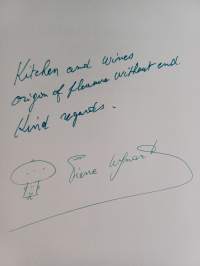 Kitchen and wines
origin of pleasure without end
Kind regards.
Pierre Wynants